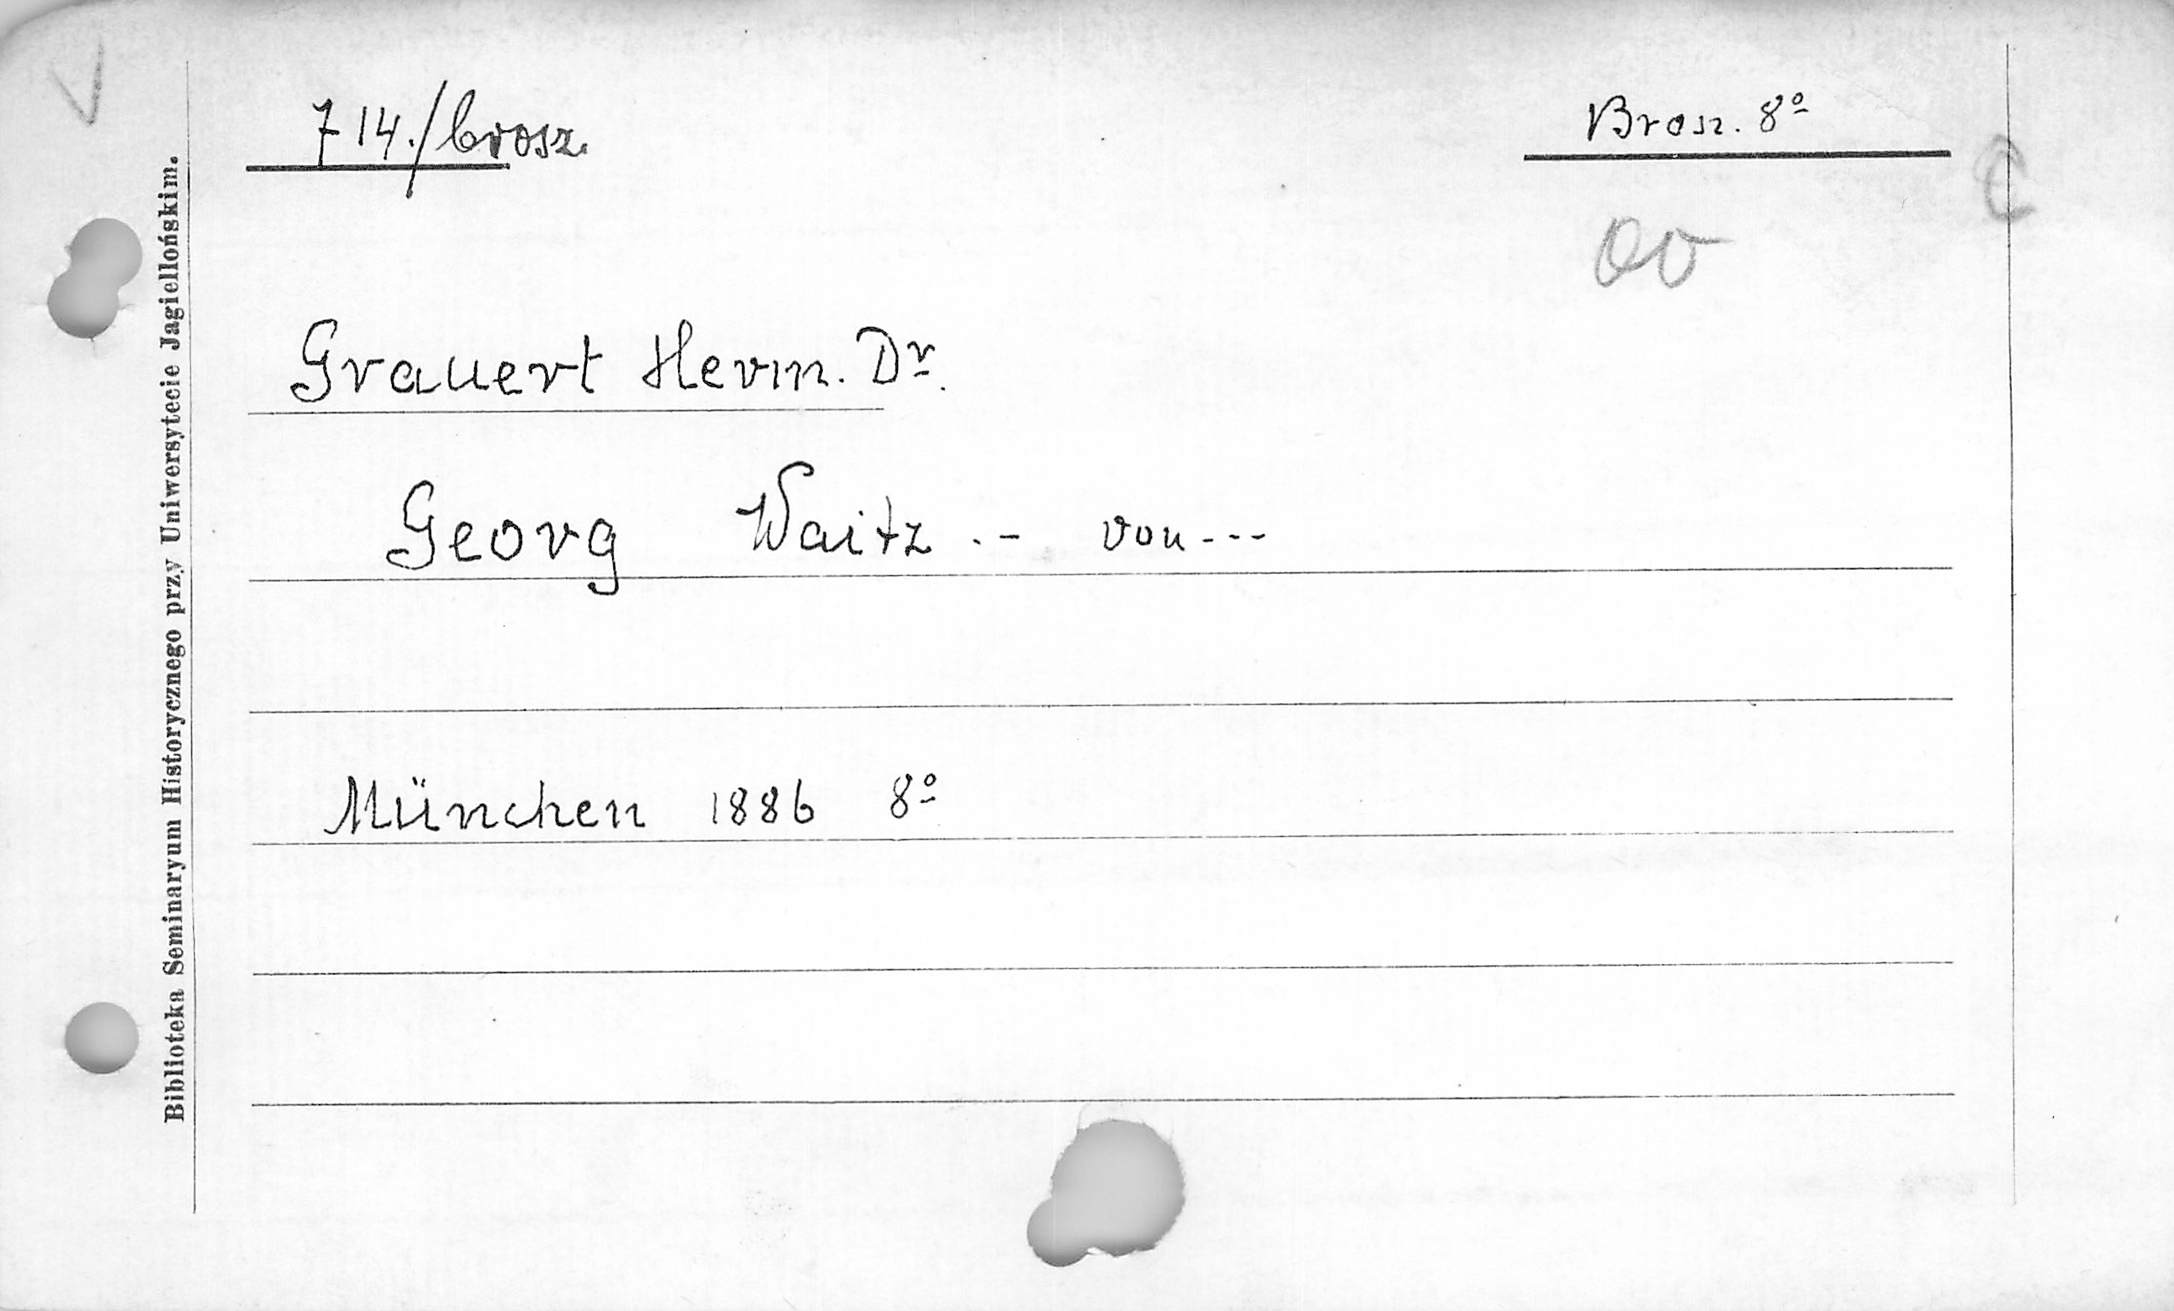 714./brosz.
Brosz. 8º
Grauert Herm. Dr.
Georg Waitz .- von ---
München 1886 8º
Biblioteka Seminaryum Historycznego przy Uniwersytecie Jagiellońskim.